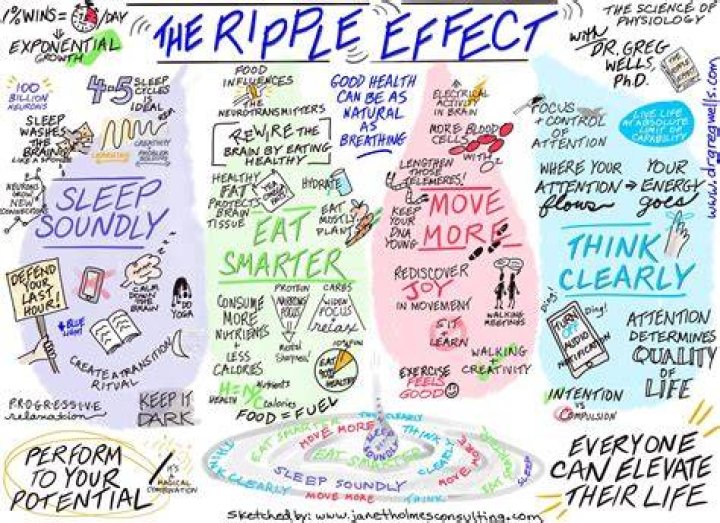 1% WINS = /DAY
EXPONENTIAL
GROWTH
THE RIPPLE EFFECT
THE SCIENCE OF
PHYSIOLOGY
with
DR. GREG
WELLS,
Ph.D.
www.drgregwells.com
100
BILLION
NEURONS
4-5 SLEEP
CYCLES
IS
IDEAL
SLEEP
WASHES
THE
BRAIN
LIKE A SPONGE
REM
CREATIVITY
PROBLEM
SOLVING
LEARNING
NEURONS
GROW
NEW
CONNECTIONS
SLEEP
SOUNDLY
DEFEND
YOUR
LAST
HOUR!
CALM
DOWN
THE
BRAIN
DO
YOGA
BLUE
LIGHT
CREATE A TRANSITION
RITUAL
PROGRESSIVE
relaxation
KEEP IT
DARK
FOOD
INFLUENCES
THE
NEUROTRANSMITTERS
REWIRE THE
BRAIN BY EATING
HEALTHY
HEALTHY
FAT
PROTECTS
BRAIN
TISSUE
HYDRATE
EAT
MOSTLY
PLANTS
EAT
SMARTER
CONSUME
MORE
NUTRIENTS
LESS
CALORIES
PROTEIN
NARROWS
FOCUS
Mental
Sharpness!
CARBS
WIDEN
FOCUS
relax
10% FUN
EAT
90%
HEALTHY
H=N/C
HEALTH
Nutrients
Calories
FOOD = FUEL
GOOD HEALTH
CAN BE AS
NATURAL
AS
BREATHING
ELECTRICAL
ACTIVITY
IN BRAIN
MORE BLOOD
CELLS
WITH O2
LENGTHEN
THOSE
TELEMERES!
KEEP
YOUR
DNA
YOUNG
MOVE
MORE
REDISCOVER
JOY
IN MOVEMENT
WALKING
MEETINGS
SIT
+
LEARN
WALKING
CREATIVITY
EXERCISE
FEELS
GOOD
FOCUS
+ CONTROL
OF
ATTENTION
LIVE LIFE
AT ABSOLUTE
LIMIT OF
CAPABILITY
WHERE YOUR
ATTENTION
flows
YOUR
ENERGY
goes
THINK
CLEARLY
Ding!
Ding!
TURN
OFF
AUDIO
NOTIFICATION
ATTENTION
DETERMINES
QUALITY
OF
LIFE
INTENTION
VS
COMPULSION
PERFORM
TO YOUR
POTENTIAL
IT'S
A
MAGICAL
COMBINATION
EAT SMARTER
MOVE MORE
THINK CLEARLY
SLEEP SOUNDLY
EAT SMARTER
THINK CLEARLY
MOVE MORE
THINK CLEARLY
SLEEP SOUNDLY
MOVE MORE
THINK
EAT
SLEEP
EVERYONE
CAN ELEVATE
THEIR LIFE
Sketched by: www.janetholmesconsulting.com